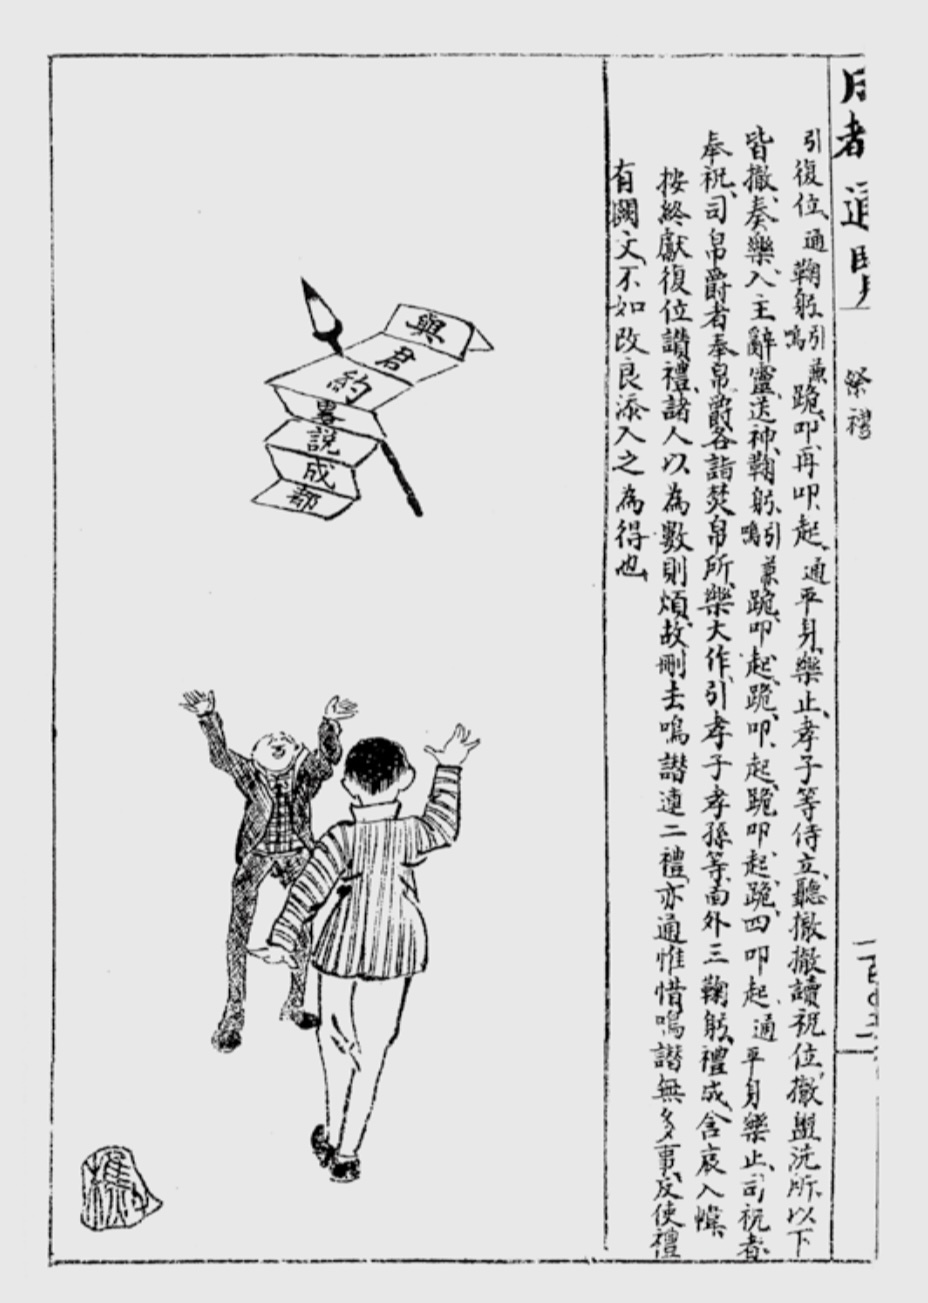 祭禮
引復位、通鞠躬、引鳴兼跪、叩、再叩、起、通平身、樂止、孝子等侍立、聽撤、撤讀祝位、撤盥洗所、以下
皆撤、奏樂、入主、辭靈、送神、鞠躬、引鳴兼跪、叩、起、跪、叩、起、跪、叩、起、跪、四叩、起、通平身、樂止、司祝者
奉祝、司帛爵者奉帛爵、各詣焚帛所、樂大作、引孝子孝孫等、面外三鞠躬、禮成、含哀入幃、
按終獻復位讚禮、諸人以為數則煩、故刪去鳴讃連二禮、亦通、惟惜鳴讃無多事、反使禮
有闕文、不如改良添入之為得也
與
君
約
畧
說
成
都